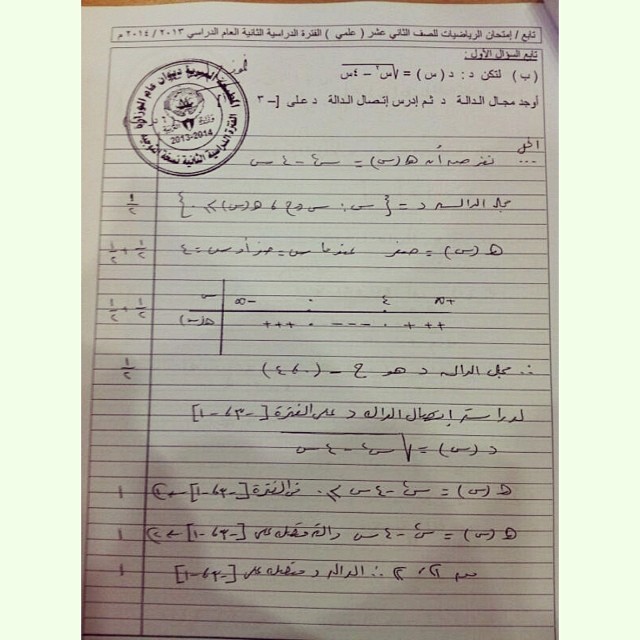 تابع / إمتحان الرياضيات للصف الثاني عشر ( علمي ) الفترة الدراسية الثانية العام الدراسي ٢٠١٣ / ٢٠١٤ م
تابع السؤال الأول :
(ب) لتكن د : د ( س ) = √س٢ − ٤س
أوجد مجال الدالة د ثم إدرس إتصال الدالة د على [ − ٣
2013-2014
الفترة الدراسية الثانية نسخة التوجيه
الحل
نفرض أن هـ (س) = س٢ − ٤ س
مجال الدالة د = { س : س ∈ ح ، هـ (س) ≥ ٠ } ١/٢
هـ (س) = صفر عندما س = صفر أو س = ٤ ١/٢ + ١/٢
س −∞ ٠ ٤ +∞ ١/٢ + ١/٢
هـ(س) +++ ٠ −−− ٠ +++
∴ مجال الدالة د هو ح − (٠ ، ٤) ١/٢
لدراسة إتصال الدالة د على الفترة [−٣ ، −١]
د (س) = √س٢ − ٤ س
هـ (س) = س٢ − ٤ س ≥ ٠ في الفترة [−٣ ، −١] ← ① ١
هـ (س) = س٢ − ٤ س دالة متصلة على [−٣ ، −١] ← ② ١
من ① ، ② ∴ الدالة د متصلة على [−٣ ، −١] ١